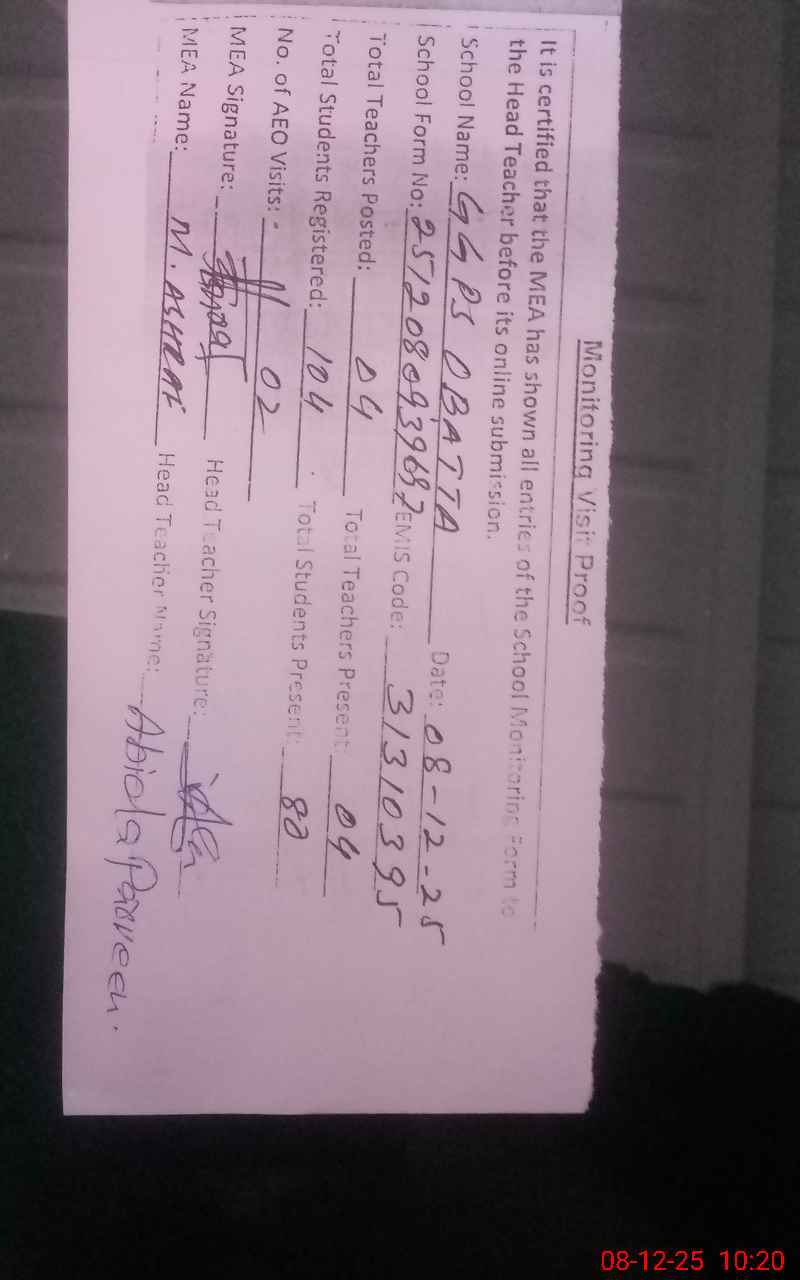 Monitoring Visit Proof
It is certified that the MEA has shown all entries of the School Monitoring Form to
the Head Teacher before its online submission.
School Name: GGPS OBATTA Date: 08-12-25
School Form No: EMIS Code: 31310395
Total Teachers Posted: 04 Total Teachers Present: 04
Total Students Registered: 104 Total Students Present: 80
No. of AEO Visits: 02
MEA Signature: Head Teacher Signature:
MEA Name: M. ASHRAF Head Teacher Name: Abida Parveen.
08-12-25 10:20